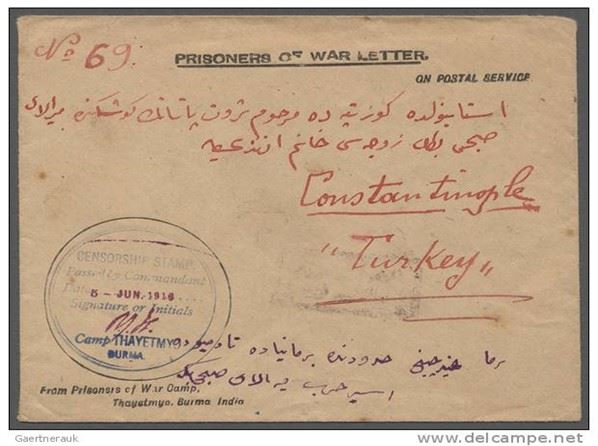 No 69.
PRISONERS OF WAR LETTER.
ON POSTAL SERVICE
استانبولده كوزتپه ده مرحوم ثروت پاشانك كوشكنده ميرالاى
صبحى بك زوجه سى خانم افندى يه
Constantinople
"Turkey"
CENSORSHIP STAMP.
Passed by Commandant
Date
5 - JUN. 1916
Signature or Initials
Camp THAYETMYO
BURMA.
برما هند چينى حدودنده برمانياده
اسير حرب ميرالاى صبحى بك
From Prisoners of War Camp,
Thayetmyo, Burma India
Gaertnerauk
delcampe.net